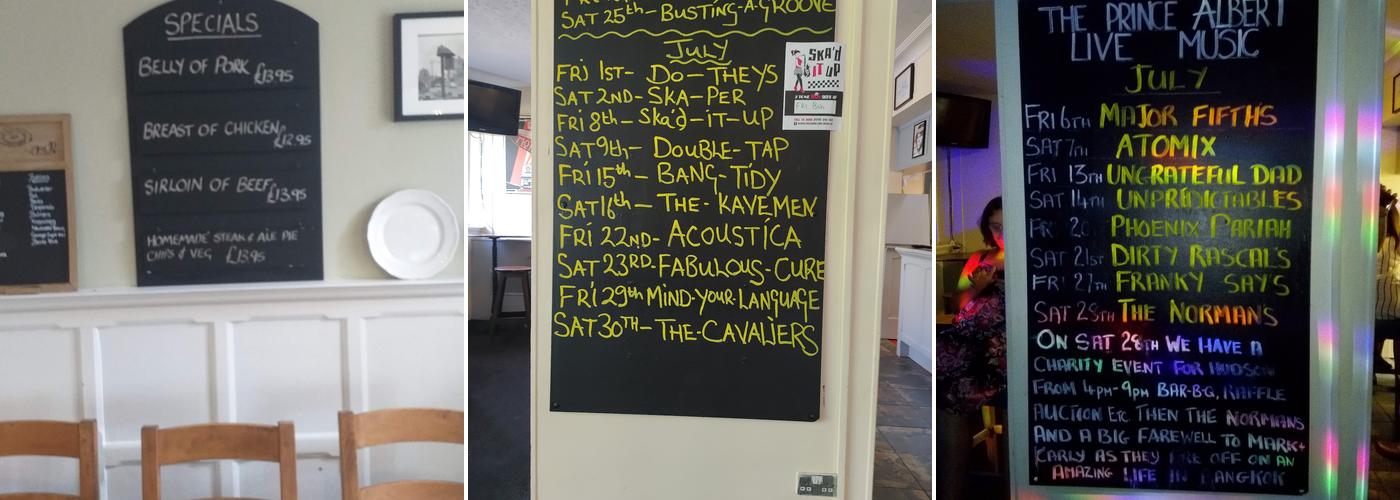 SPECIALS
BELLY OF PORK £13.95
BREAST OF CHICKEN £12.95
SIRLOIN OF BEEF £13.95
HOMEMADE STEAK & ALE PIE
CHIPS & VEG £13.95
SAT 25th - BUSTING-A-GROOVE
JULY
FRI 1ST - DO-THEYS
SAT 2ND - SKA-PER
FRI 8th - SKA'D-IT-UP
SAT 9th - DOUBLE-TAP
FRI 15th - BANG-TIDY
SAT 16th - THE-KAVEMEN
FRI 22ND - ACOUSTICA
SAT 23RD - FABULOUS-CURE
FRI 29th MIND-YOUR-LANGUAGE
SAT 30TH - THE-CAVALIERS
SKA'D
IT UP
FRI 8th
THE PRINCE ALBERT
LIVE MUSIC
JULY
FRI 6TH MAJOR FIFTHS
SAT 7TH ATOMIX
FRI 13TH UNGRATEFUL DAD
SAT 14TH UNPREDICTABLES
FRI 20 PHOENIX PARIAH
SAT 21ST DIRTY RASCALS
FRI 27TH FRANKY SAY'S
SAT 28TH THE NORMANS
ON SAT 28TH WE HAVE A
CHARITY EVENT FOR HUDSON
FROM 4PM-9PM BAR-B-Q, RAFFLE
AUCTION ETC THEN THE NORMANS
AND A BIG FAREWELL TO MARK+
CARLY AS THEY ARE OFF ON AN
AMAZING LIFE IN BANGKOK